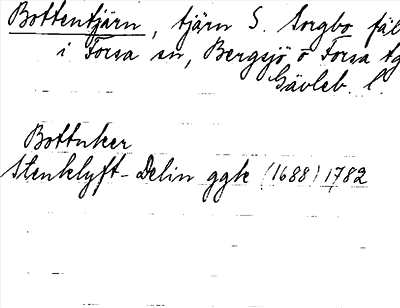 Bottentjärn, tjärn S. Sorgbo fäb
i Forsa sn, Bergsjö o Forsa tg
Gävleb. l.
Bottnker
Stenklyft-Delin ggk (1688) 1782